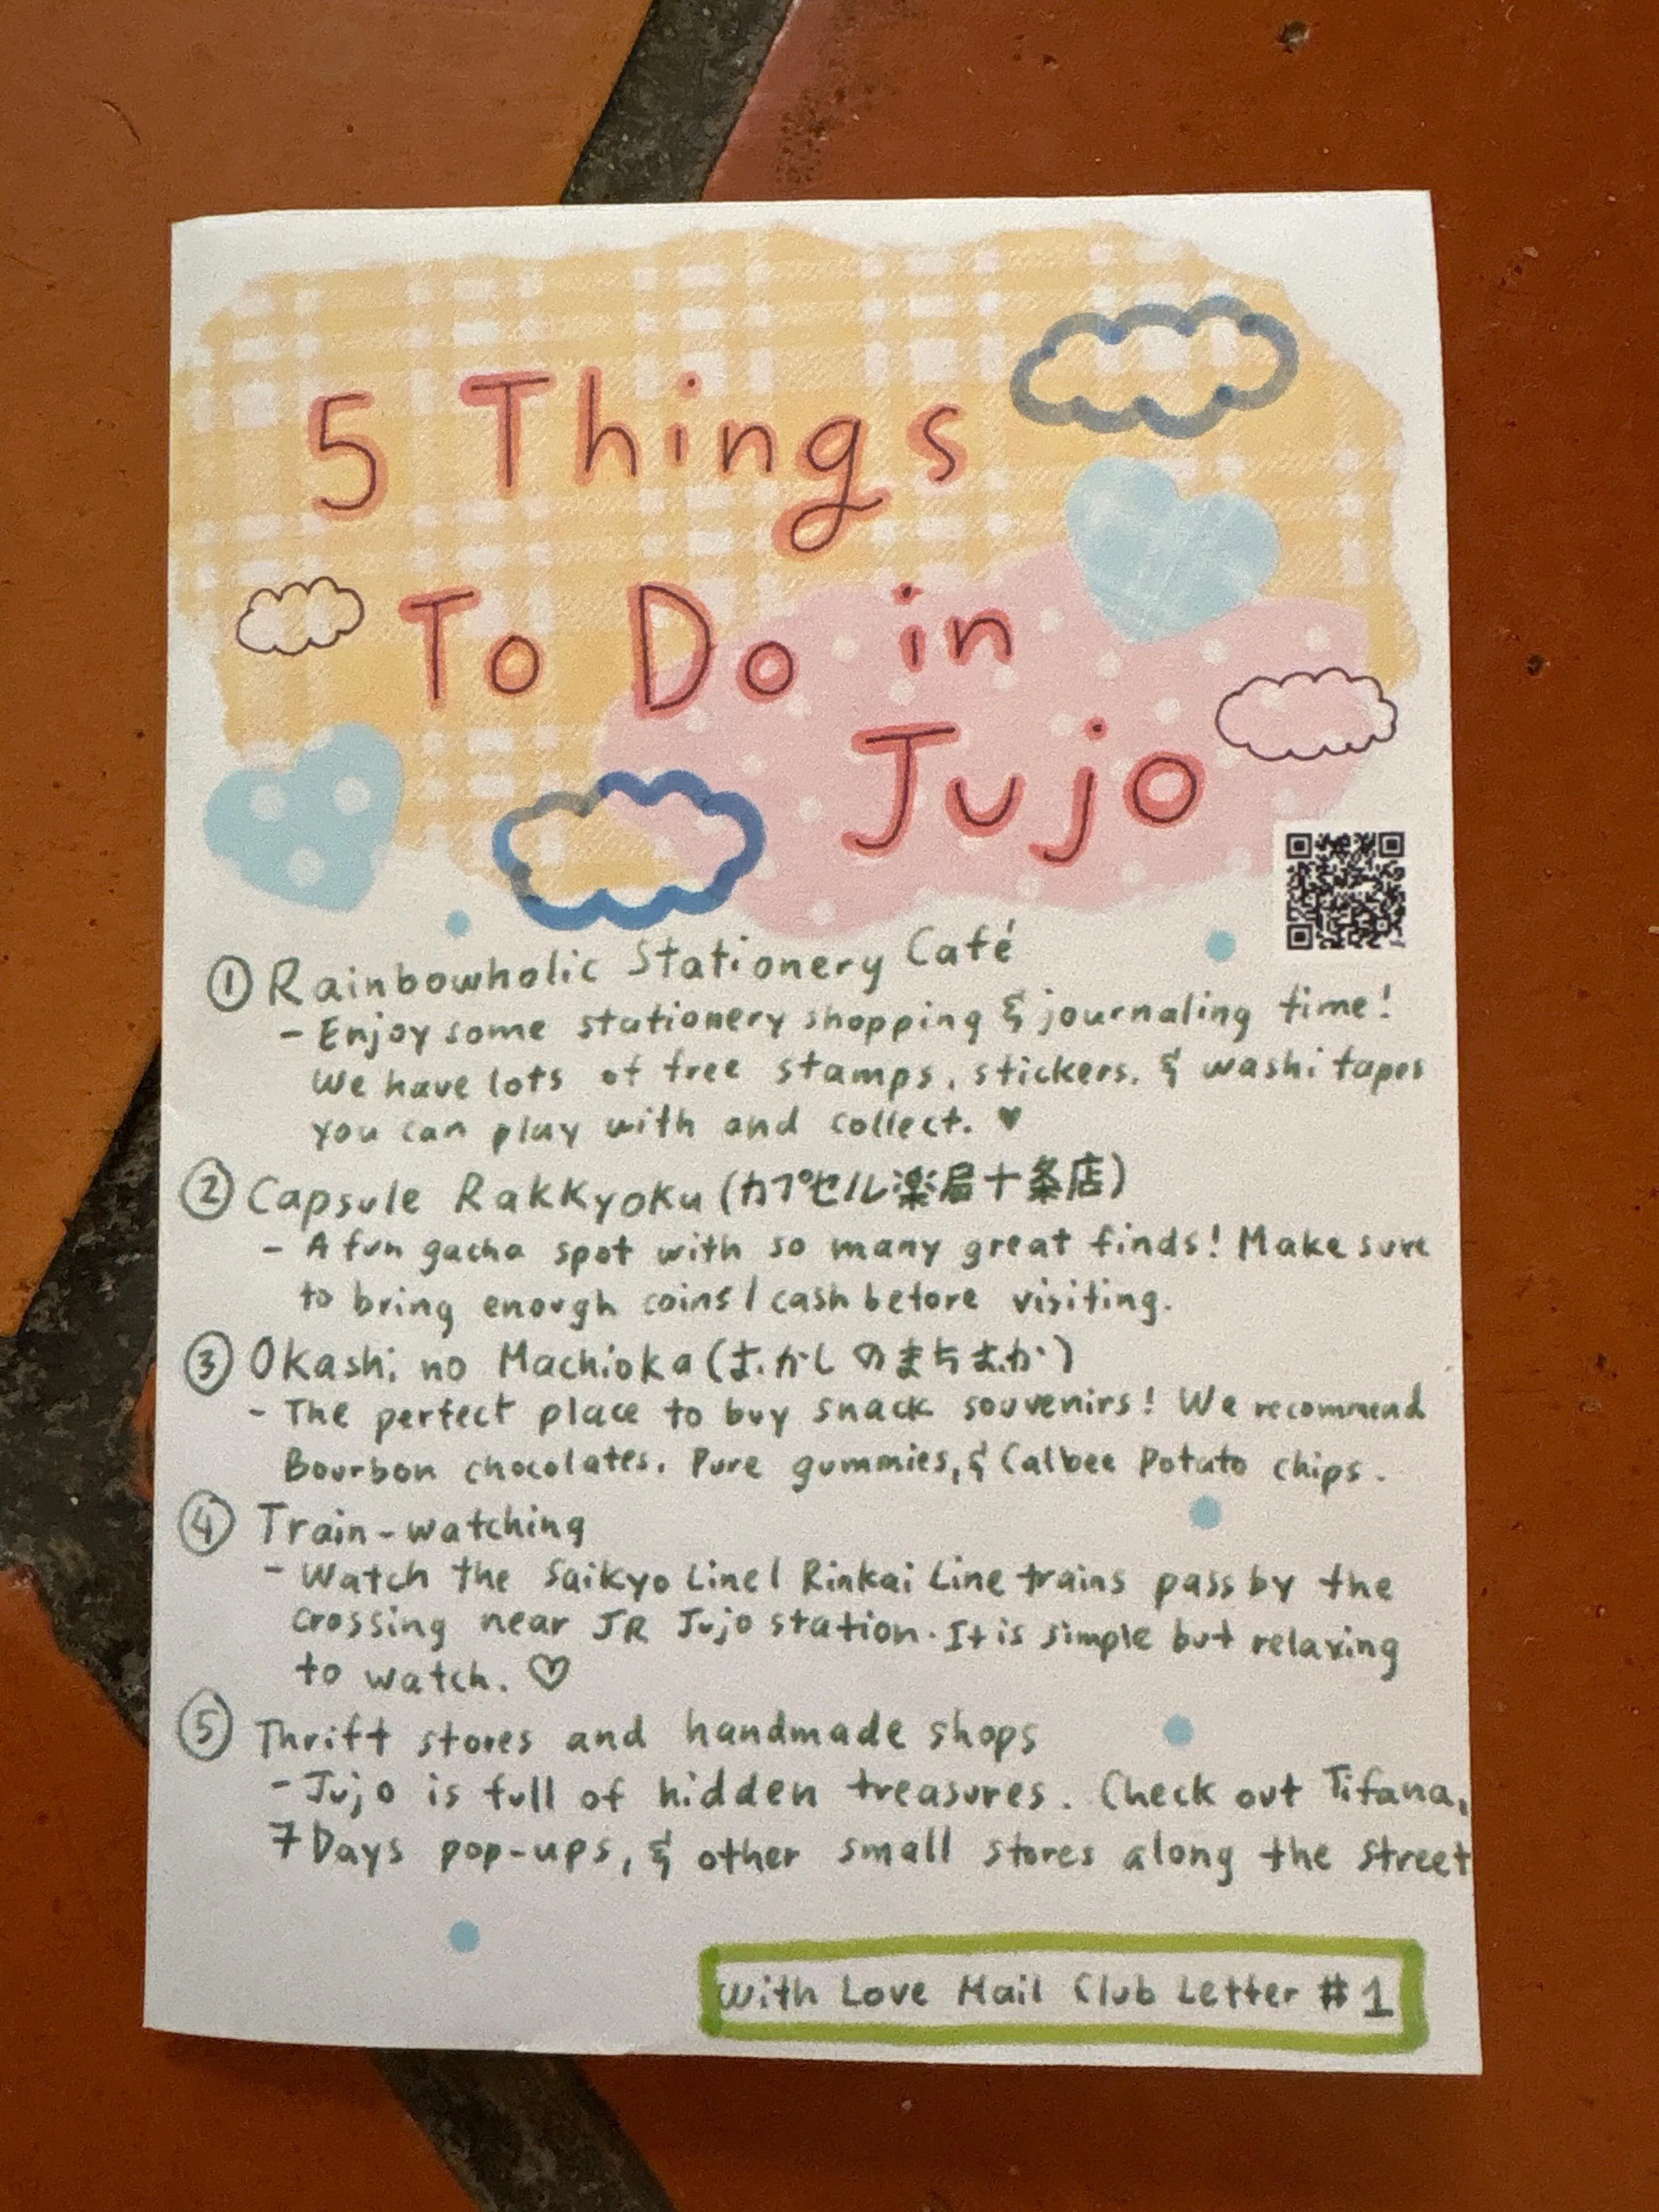 5 Things
To Do in
Jujo
① Rainbowholic Stationery Café
- Enjoy some stationery shopping & journaling time!
We have lots of free stamps, stickers, & washi tapes
you can play with and collect. ♥
② Capsule Rakkyoku (カプセル楽局十条店)
- A fun gacha spot with so many great finds! Make sure
to bring enough coins/cash before visiting.
③ Okashi no Machioka (おかしのまちおか)
- The perfect place to buy snack souvenirs! We recommend
Bourbon chocolates, Pure gummies, & Calbee Potato chips.
④ Train-watching
- Watch the Saikyo Line/Rinkai Line trains pass by the
crossing near JR Jujo station. It is simple but relaxing
to watch. ♡
⑤ Thrift stores and handmade shops
- Jujo is full of hidden treasures. Check out Tifana,
7 Days pop-ups, & other small stores along the street
With Love Mail Club Letter #1